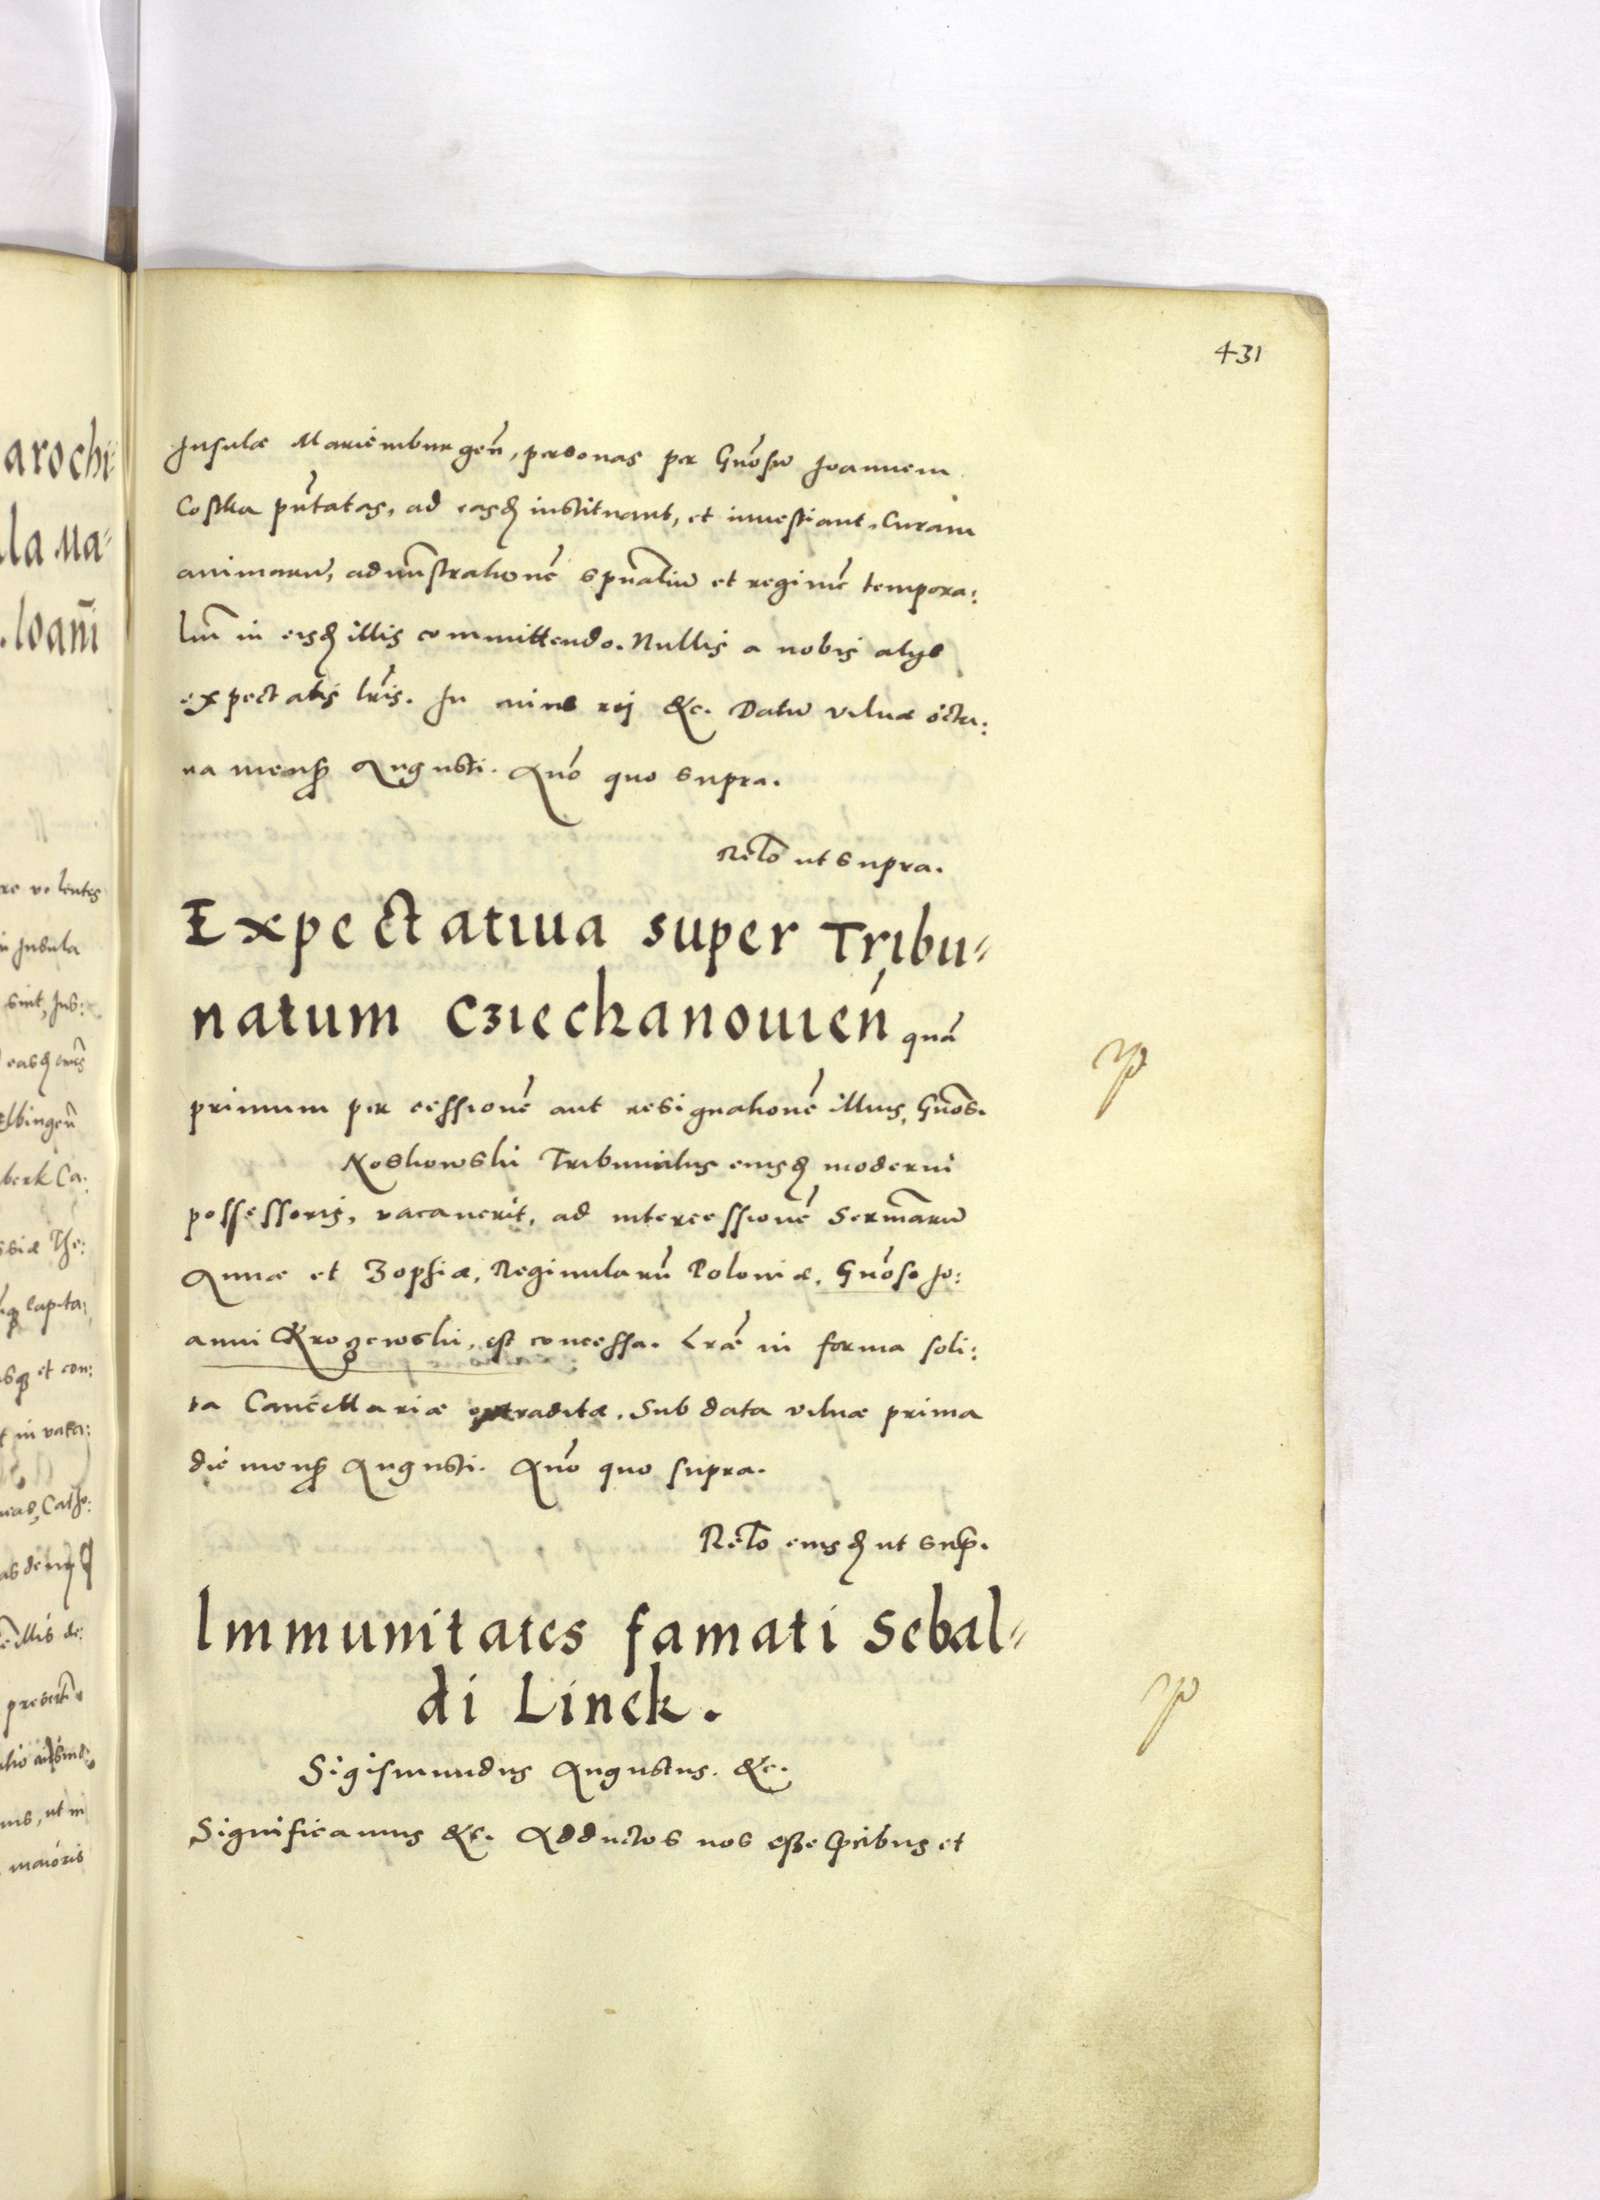 431
Insulæ Mariemburgen̄, personas per Gn̄osū Ioannem
Costka pn̄tatas, ad easdꝫ instituant, et inuestiant. Curam
animarū, admn̄strationē spūaliū et regimē tempora:
liū in eisdꝫ illis committendo. Nullis a nobis alijs
expectatis lrīs. In cuius rej &c. Datū Vilnæ octa:
ua mensꝭ Augusti. An̄o quo supra.
Rel̄o ut supra.
Expectatiua super Tribu=
natum Cziechanouien̄ quā
primum per cessionē aut resignationē illius, Gn̄os.
Koskowski Tribuni illius eiusdꝫ moderni
possessoris, vacauerit, ad intercessionē Serm̄arū
Annæ et Zophiæ, Reginularū Poloniæ, Gn̄oso Jo:
anni Krozewski, est concessa. Lr̄æ in forma soli:
ta Cancellariæ extraditæ. Sub data Vilnæ prima
die mensꝭ Augusti. An̄o quo supra.
Rel̄o eiusdꝫ ut sup̄.
Immunitates famati Sebal=
di Linck.
Sigismundus Augustus. &c.
Significamus &c. Adductos nos esse p̄cibus et
arochi=
lla Ma=
Ioan̄i
re volentes
Insula
sint, Ins:
Elbingen̄
berk Ca:
ssiæ The:
Capita:
et con:
in vaca:
Catho:
illis de:
ut in
maioris